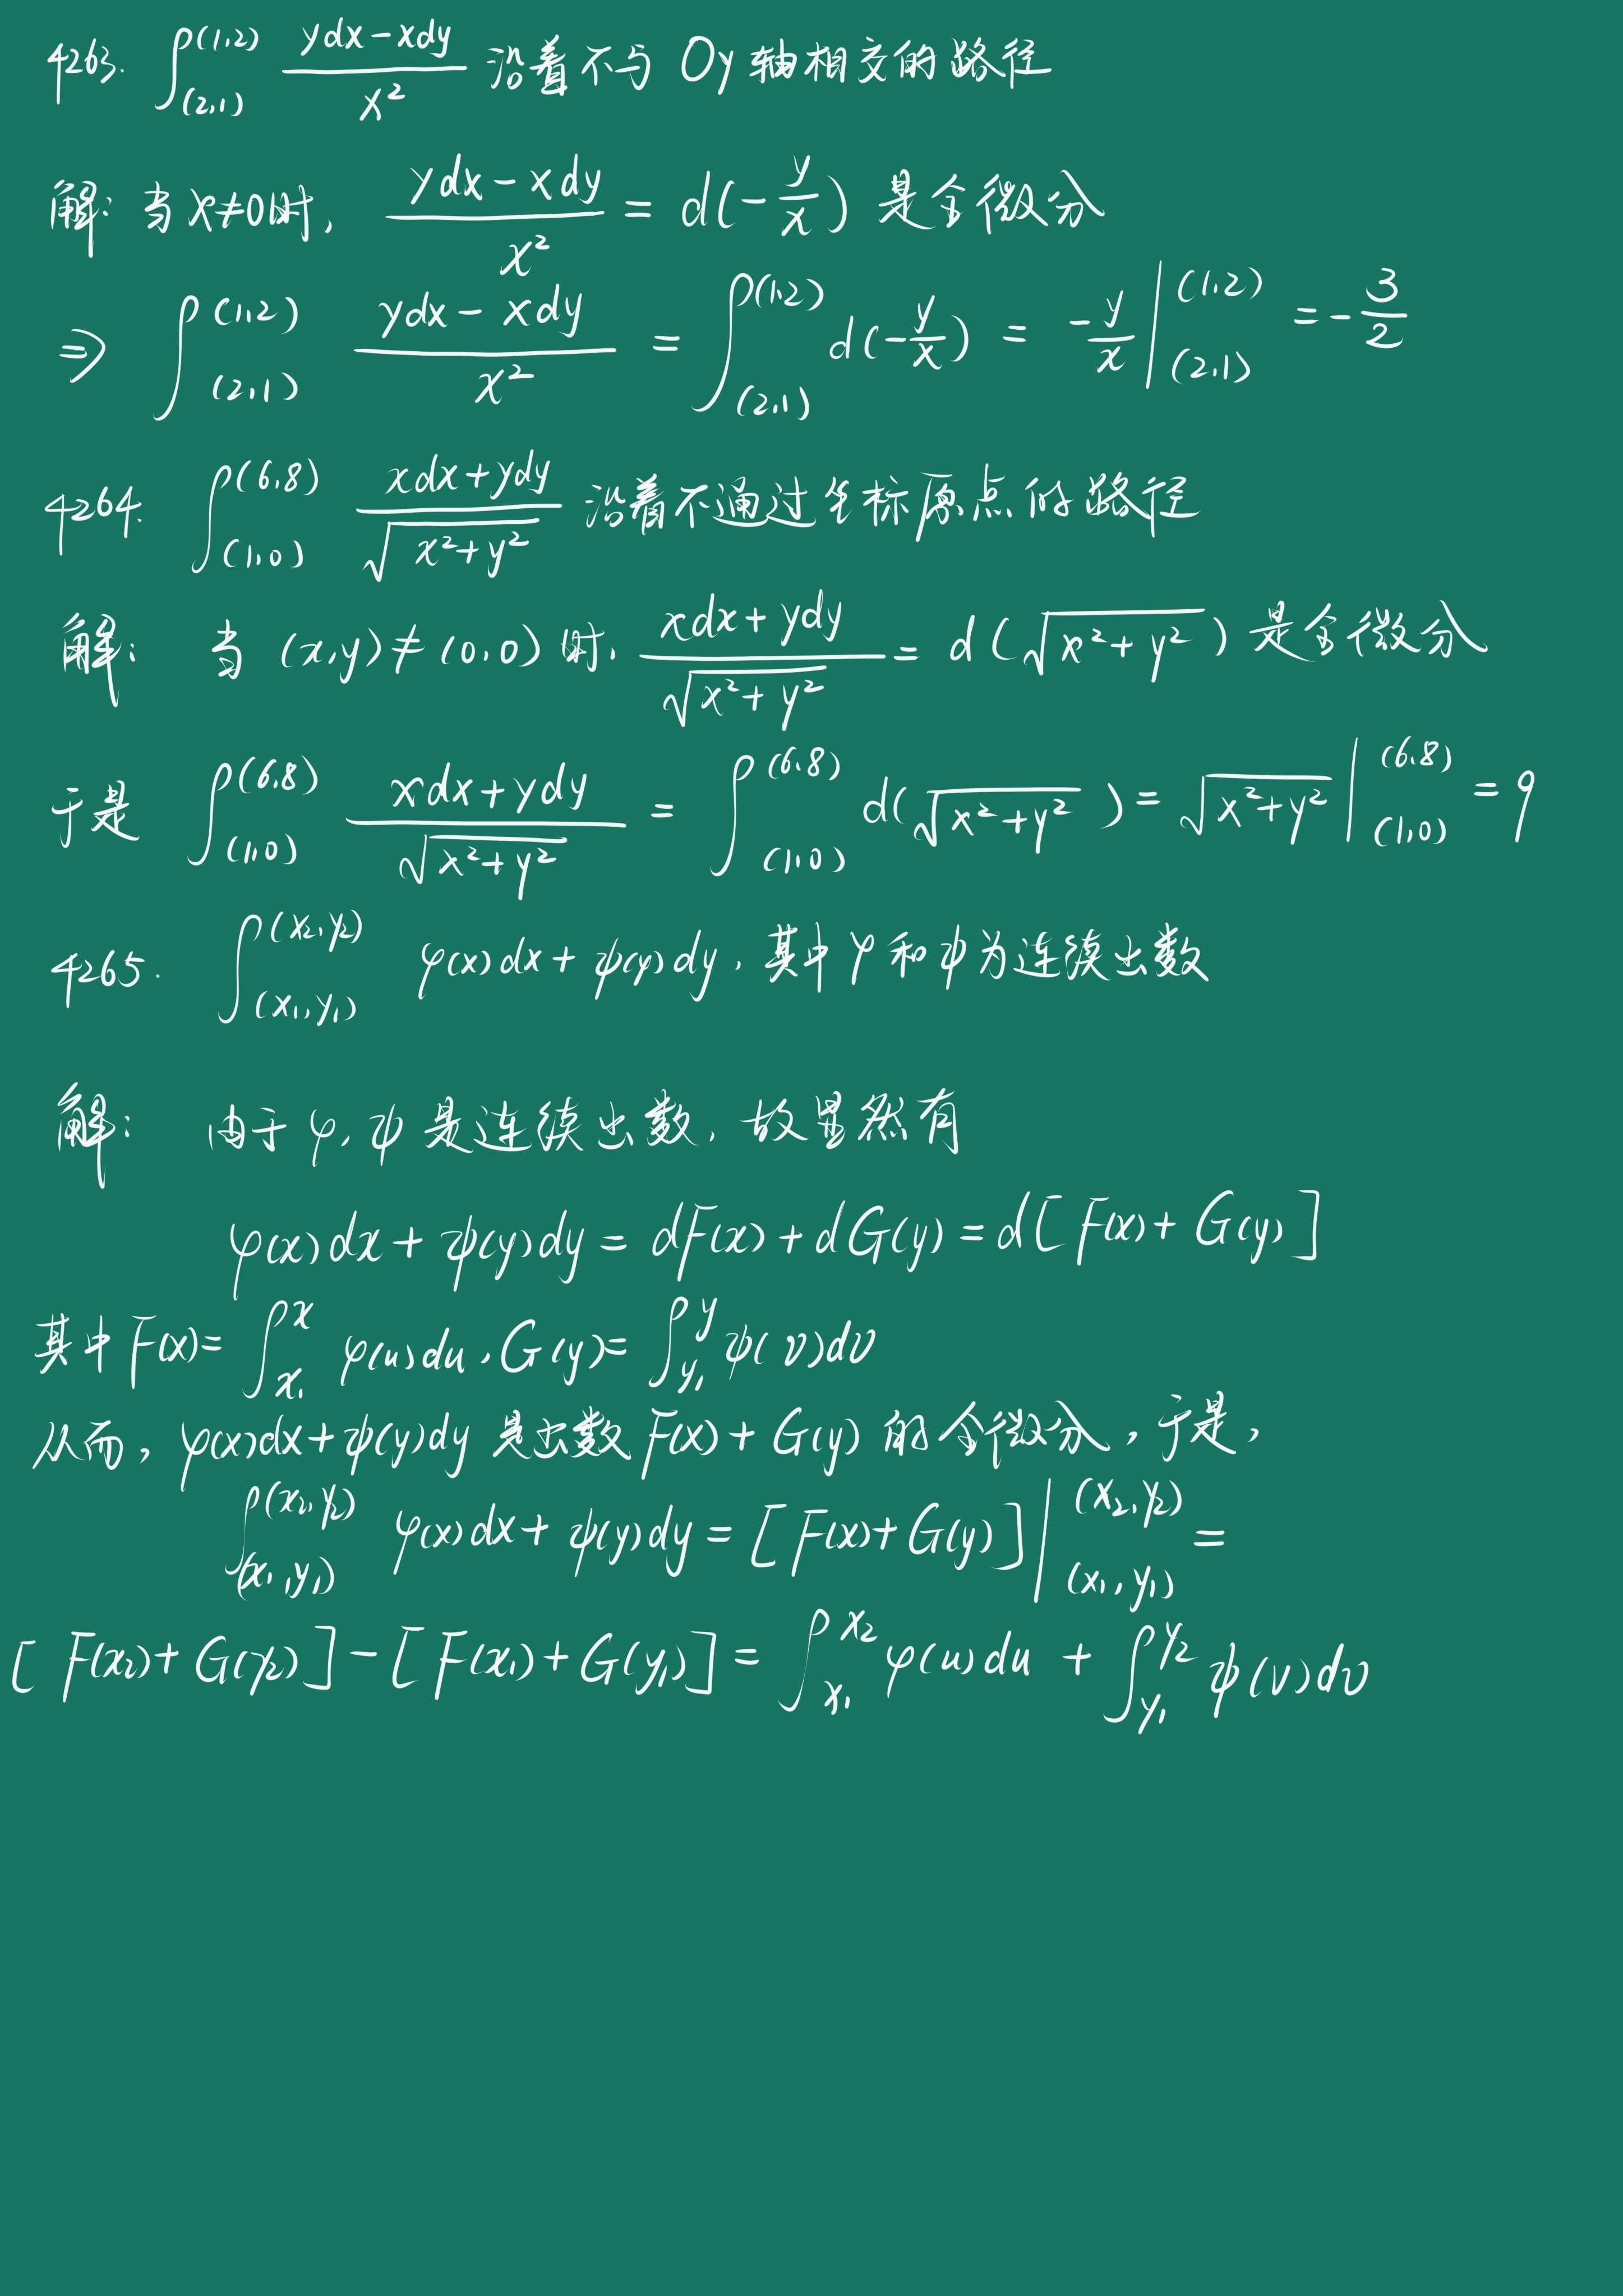 4263. ∫_{(2,1)}^{(1,2)} (ydx - xdy)/x² 沿着不与 Oy 轴相交的路径
解: 当 x≠0时, (ydx - xdy)/x² = d(-y/x) 是全微分
⇒ ∫_{(2,1)}^{(1,2)} (ydx - xdy)/x² = ∫_{(2,1)}^{(1,2)} d(-y/x) = -y/x |_{(2,1)}^{(1,2)} = -3/2
4264. ∫_{(1,0)}^{(6,8)} (xdx + ydy)/√(x²+y²) 沿着不通过坐标原点的路径
解: 当 (x,y)≠(0,0) 时, (xdx + ydy)/√(x²+y²) = d(√(x²+y²)) 是全微分
于是 ∫_{(1,0)}^{(6,8)} (xdx + ydy)/√(x²+y²) = ∫_{(1,0)}^{(6,8)} d(√(x²+y²)) = √(x²+y²) |_{(1,0)}^{(6,8)} = 9
4265. ∫_{(x₁,y₁)}^{(x₂,y₂)} φ(x)dx + ψ(y)dy, 其中 φ 和 ψ 为连续函数
解: 由于 φ, ψ 是连续函数, 故显然有
φ(x)dx + ψ(y)dy = dF(x) + dG(y) = d[F(x) + G(y)]
其中 F(x) = ∫_{x₁}^{x} φ(u)du, G(y) = ∫_{y₁}^{y} ψ(v)dv
从而, φ(x)dx + ψ(y)dy 是函数 F(x) + G(y) 的全微分, 于是,
∫_{(x₁,y₁)}^{(x₂,y₂)} φ(x)dx + ψ(y)dy = [F(x) + G(y)] |_{(x₁,y₁)}^{(x₂,y₂)} =
[F(x₂) + G(y₂)] - [F(x₁) + G(y₁)] = ∫_{x₁}^{x₂} φ(u)du + ∫_{y₁}^{y₂} ψ(v)dv